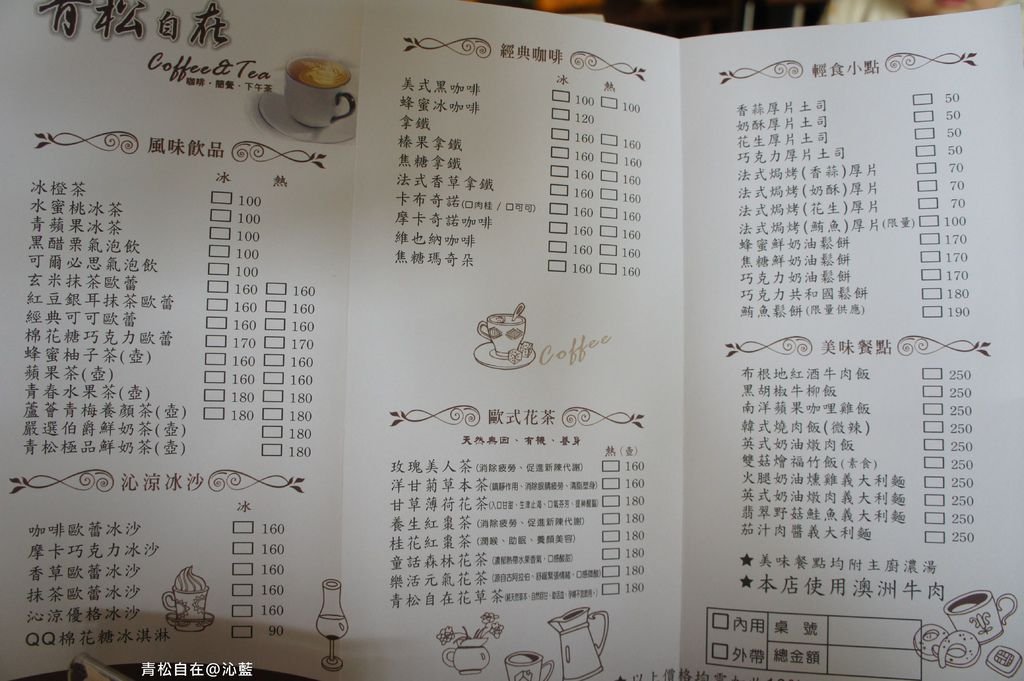 青松自在
Coffee&Tea
咖啡、簡餐、下午茶
風味飲品
冰 熱
冰橙茶 100
水蜜桃冰茶 100
青蘋果冰茶 100
黑醋栗氣泡飲 100
可爾必思氣泡飲 100
玄米抹茶歐蕾 160 160
紅豆銀耳抹茶歐蕾 160 160
經典可可歐蕾 160 160
棉花糖巧克力歐蕾 170 170
蜂蜜柚子茶(壺) 160 160
蘋果茶(壺) 160 160
青春水果茶(壺) 180 180
蘆薈青梅養顏茶(壺) 180 180
嚴選伯爵鮮奶茶(壺) 180
青松極品鮮奶茶(壺) 180
沁涼冰沙
冰
咖啡歐蕾冰沙 160
摩卡巧克力冰沙 160
香草歐蕾冰沙 160
抹茶歐蕾冰沙 160
沁涼優格冰沙 160
QQ棉花糖冰淇淋 90
經典咖啡
冰 熱
美式黑咖啡 100 100
蜂蜜冰咖啡 120
拿鐵 160 160
榛果拿鐵 160 160
焦糖拿鐵 160 160
法式香草拿鐵 160 160
卡布奇諾(口肉桂 / 口可可) 160 160
摩卡奇諾咖啡 160 160
維也納咖啡 160 160
焦糖瑪奇朵 160 160
Coffee
歐式花茶
天然典因、有機、養身
熱(壺)
玫瑰美人茶(消除疲勞、促進新陳代謝) 160
洋甘菊草本茶(鎮靜作用、消除眼睛疲勞、清脂塑身) 160
甘草薄荷花茶 160
養生紅棗茶(消除疲勞、促進新陳代謝) 180
桂花紅棗茶(潤喉、助眠、養顏美容) 180
童話森林花茶(濃郁熱帶水果香氣、口感酸甜) 180
樂活元氣花茶(源自古阿拉伯、舒緩緊張情緒、口感微酸) 180
青松自在花草茶 180
輕食小點
香蒜厚片土司 50
奶酥厚片土司 50
花生厚片土司 50
巧克力厚片土司 50
法式焗烤(香蒜)厚片 70
法式焗烤(奶酥)厚片 70
法式焗烤(花生)厚片 70
法式焗烤(鮪魚)厚片(限量) 100
蜂蜜鮮奶油鬆餅 170
焦糖鮮奶油鬆餅 170
巧克力奶油鬆餅 170
巧克力共和國鬆餅 180
鮪魚鬆餅(限量供應) 190
美味餐點
布根地紅酒牛肉飯 250
黑胡椒牛柳飯 250
南洋蘋果咖哩雞飯 250
韓式燒肉飯(微辣) 250
英式奶油燉肉飯 250
雙菇燴福竹飯(素食) 250
火腿奶油燻雞義大利麵 250
英式奶油燉肉義大利麵 250
翡翠野菇鮭魚義大利麵 250
茄汁肉醬義大利麵 250
★美味餐點均附主廚濃湯
★本店使用澳洲牛肉
□內用 桌 號
□外帶 總金額
★以上價格均需加
青松自在@沁藍